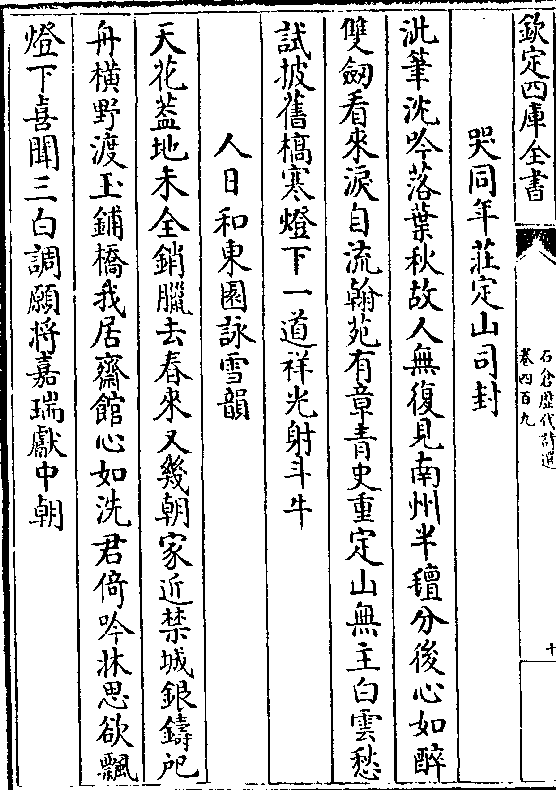 欽定四庫全書
石倉歴代詩選
卷四百九
十
哭同年莊定山司封
泚筆沈吟落葉秋故人無復見南州半氊分後心如醉
雙劒看來淚自流翰苑有章青史重定山無主白雲愁
試披舊槁寒燈下一道祥光射斗牛
人日和東園詠雪韻
天花蓋地未全銷臘去春來又幾朝家近禁城銀鑄戺
舟横野渡玉鋪橋我居齋館心如洗君倚吟牀思欲飄
燈下喜聞三白調願将嘉瑞獻中朝